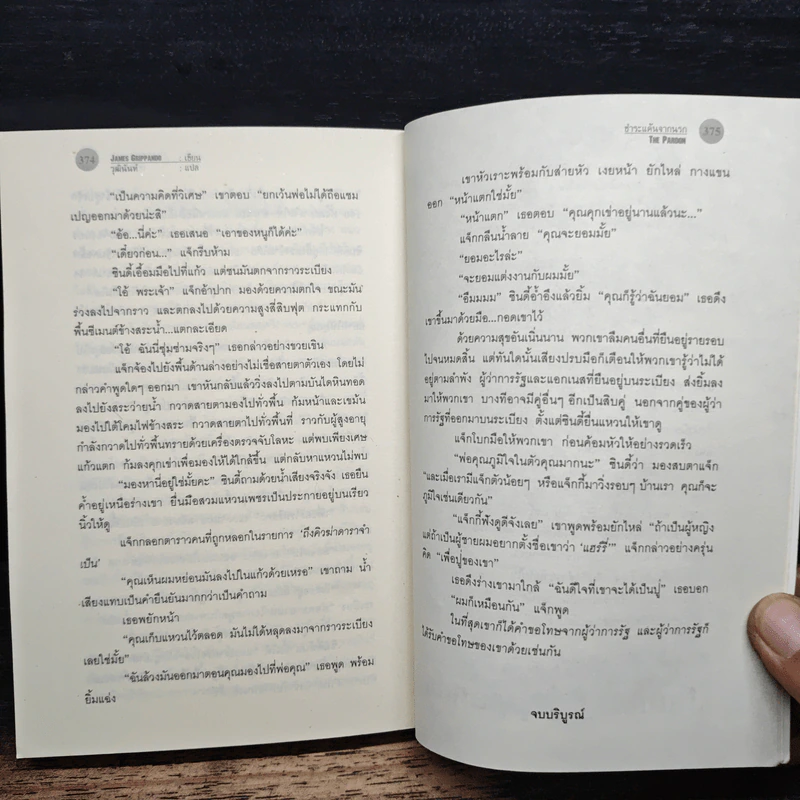 374 JAMES GRIPPANDO : เขียน
วุฒินันท์ : แปล
"เป็นความคิดที่วิเศษ" เขาตอบ "ยกเว้นพ่อไม่ได้ถือแชม
เปญออกมาด้วยน่ะสิ"
"อ้อ...นี่ค่ะ" เธอเสนอ "เอาของหนูก็ได้ค่ะ"
"เดี๋ยวก่อน..." แจ็กรีบห้าม
ซินดี้เอื้อมมือไปที่แก้ว แต่ชนมันตกจากราวระเบียง
"โอ้ พระเจ้า" แจ็กอ้าปาก มองด้วยความตกใจ ขณะมัน
ร่วงลงไปจากราว และตกลงไปด้วยความสูงสี่สิบฟุต กระแทกกับ
พื้นซีเมนต์ข้างสระน้ำ...แตกละเอียด
"โอ้ ฉันนี่ซุ่มซ่ามจริงๆ" เธอกล่าวอย่างขวยเขิน
แจ็กจ้องไปยังพื้นด้านล่างอย่างไม่เชื่อสายตาตัวเอง โดยไม่
กล่าวคำพูดใดๆ ออกมา เขาหันกลับแล้ววิ่งลงไปตามบันไดหินทอด
ลงไปยังสระว่ายน้ำ กวาดสายตามองไปทั่วพื้น ก้มหน้าและเขม้น
มองไปใต้โคมไฟข้างสระ กวาดสายตาไปทั่วพื้น ราวกับผู้สูงอายุ
กำลังกวาดไปทั่วพื้นทรายด้วยเครื่องตรวจจับโลหะ แต่พบเพียงเศษ
แก้วแตก ก้มลงคุกเข่าเพื่อมองให้ได้ใกล้ขึ้น แต่กลับหาแหวนไม่พบ
"มองหานี่อยู่ใช่มั้ยคะ" ซินดี้ถามด้วยน้ำเสียงจริงจัง เธอยืน
ค้ำอยู่เหนือร่างเขา ยื่นมือสวมแหวนเพชรเป็นประกายอยู่บนเรียว
นิ้วให้ดู
แจ็กกลอกตาราวคนที่ถูกหลอกในรายการ 'ถึงคิวฆ่าดาราจำ
เป็น'
"คุณเห็นผมหย่อนมันลงไปในแก้วด้วยเหรอ" เขาถาม น้ำ
เสียงแทบเป็นคำยืนยันมากกว่าเป็นคำถาม
เธอพยักหน้า
"คุณเก็บแหวนไว้ตลอด มันไม่ได้หลุดลงมาจากราวระเบียง
เลยใช่มั้ย"
"ฉันล้วงมันออกมาตอนคุณมองไปที่พ่อคุณ" เธอพูด พร้อม
ยิ้มแฉ่ง
ชำระแค้นจากนรก 375
THE PARDON
เขาหัวเราะพร้อมกับส่ายหัว เงยหน้า ยักไหล่ กางแขน
ออก "หน้าแตกใช่มั้ย"
"หน้าแตก" เธอตอบ "คุณคุกเข่าอยู่นานแล้วนะ..."
แจ็กกลืนน้ำลาย "คุณจะยอมมั้ย"
"ยอมอะไรล่ะ"
"จะยอมแต่งงานกับผมมั้ย"
"อืมมมม" ซินดี้อ้ำอึ้งแล้วยิ้ม "คุณก็รู้ว่าฉันยอม" เธอดึง
เขาขึ้นมาด้วยมือ...กอดเขาไว้
ด้วยความสุขอันเนิ่นนาน พวกเขาลืมคนอื่นที่ยืนอยู่รายรอบ
ไปจนหมดสิ้น แต่ทันใดนั้นเสียงปรบมือก็เตือนให้พวกเขารู้ว่าไม่ได้
อยู่ตามลำพัง ผู้ว่าการรัฐและแอกเนสที่ยืนอยู่บนระเบียง ส่งยิ้มลง
มาให้พวกเขา บางทีอาจมีคู่อื่นๆ อีกเป็นสิบคู่ นอกจากคู่ของผู้ว่า
การรัฐที่ออกมาบนระเบียง ตั้งแต่ซินดี้ยื่นแหวนให้เขาดู
แจ็กโบกมือให้พวกเขา ก่อนค้อมหัวให้อย่างรวดเร็ว
"พ่อคุณภูมิใจในตัวคุณมากนะ" ซินดี้ว่า มองสบตาแจ็ก
"และเมื่อเรามีแจ็กตัวน้อยๆ หรือแจ็กกี้มาวิ่งรอบๆ บ้านเรา คุณก็จะ
ภูมิใจเช่นเดียวกัน"
"แจ็กกี้ฟังดูดีจังเลย" เขาพูดพร้อมยักไหล่ "ถ้าเป็นผู้หญิง
แต่ถ้าเป็นผู้ชายผมอยากตั้งชื่อเขาว่า 'แฮร์รี่'" แจ็กกล่าวอย่างครุ่น
คิด "เพื่อปู่ของเขา"
เธอดึงร่างเขามาใกล้ "ฉันดีใจที่เขาจะได้เป็นปู่" เธอบอก
"ผมก็เหมือนกัน" แจ็กพูด
ในที่สุดเขาก็ได้คำขอโทษจากผู้ว่าการรัฐ และผู้ว่าการรัฐก็
ได้รับคำขอโทษของเขาด้วยเช่นกัน
จบบริบูรณ์